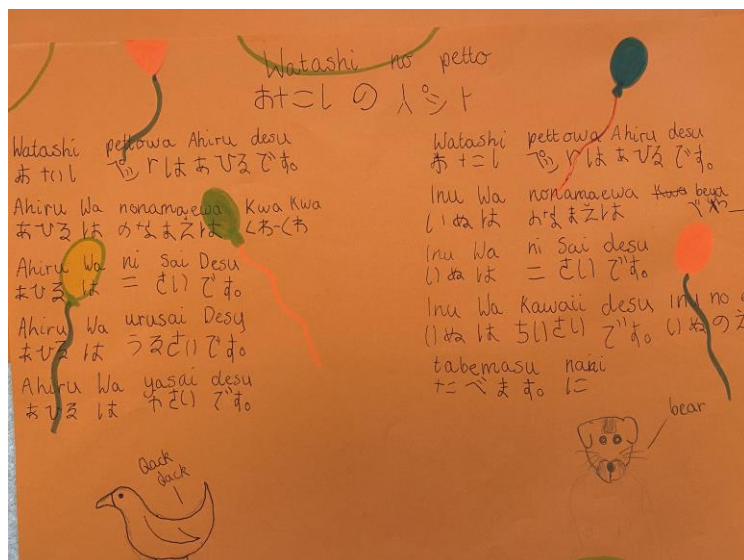 Watashi no petto
おたこし の ペット
Watashi pettowa Ahiru desu
おたいし ペットはあひるです。
Ahiru Wa nonamaewa Kwa Kwa
あひるは のなまえは くわーくわ
Ahiru Wa ni Sai Desu
あひる は 二 さい です。
Ahiru Wa urusai Desu
あひる は うるさいです。
Ahiru Wa yasai desu
あひる は やさい です。
Qack
qack
Watashi pettowa Ahiru desu
おたこし ペットはあひるです。
Inu Wa nonamaewa beya
いぬ は おなまえは
Inu Wa ni Sai desu
いぬは 二 さい です。
Inu Wa Kawaii desu Inu no
いぬ は ちいさい です。いぬのえ
tabemasu naki
たべます。に
bear